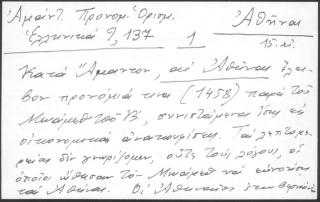 Ἀμάντ. Προνομ. Ὁρισμ. Ἀθῆναι
Ἑλληνικά 9, 137 1 15. αἰ.
Κατὰ Ἄμαντον, αἱ Ἀθῆναι ἔλα-
βον προνόμιά τινα (1458) παρὰ τοῦ
Μωάμεθ τοῦ Β', συνιστάμενα ἴσως εἰς
οἰκονομικὰ ἀνακουφίσεις. Τὰς λεπτομε-
ρείας δὲν γνωρίζομεν, οὔτε τοὺς λόγους, οἱ
ὁποῖοι ὤθησαν τὸν Μωάμεθ νὰ εὐνοήσῃ
τὰς Ἀθήνας. Οἱ Ἀθηναῖοι